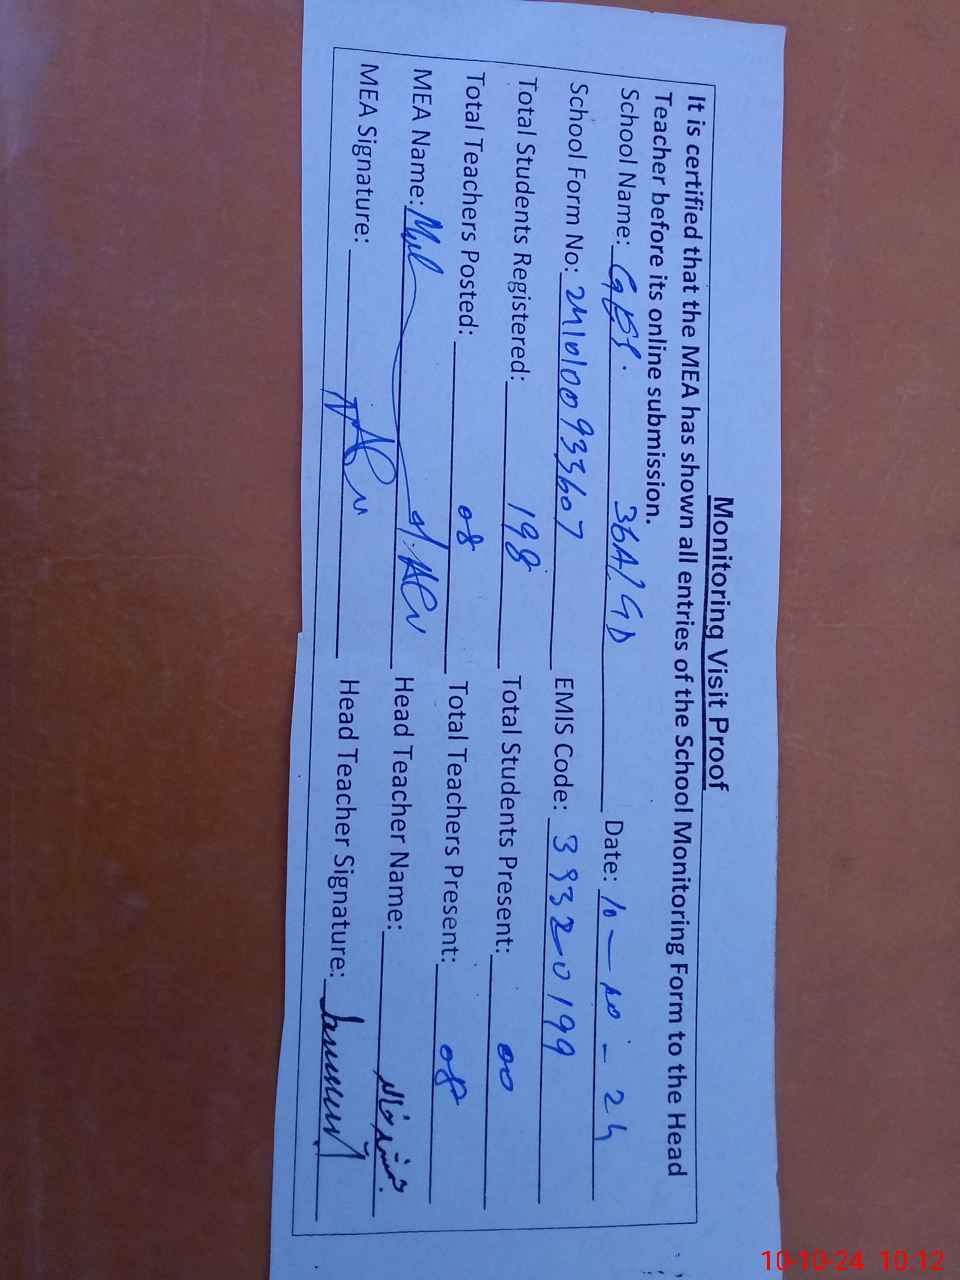 Monitoring Visit Proof
It is certified that the MEA has shown all entries of the School Monitoring Form to the Head
Teacher before its online submission.
School Name: GES. 36A/GD Date: 10-10-24
School Form No: 2410100933607 EMIS Code: 39320199
Total Students Registered: 198 Total Students Present: 00
Total Teachers Posted: 08 Total Teachers Present: 08
MEA Name: Head Teacher Name:
MEA Signature: Head Teacher Signature:
10-10-24 10:12